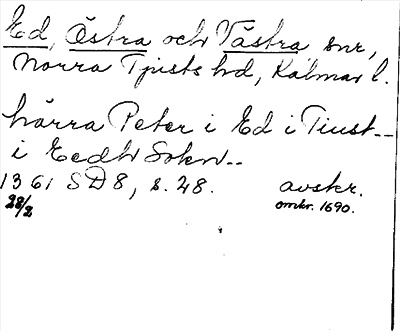 Ed, Östra och Västra snr,
Norra Tjusts hd, Kalmar l.
härra Peter i Ed i Tiust--
i Eedh Sokn--
1361 SD8, s. 28. avskr.
28/2 omkr. 1690.